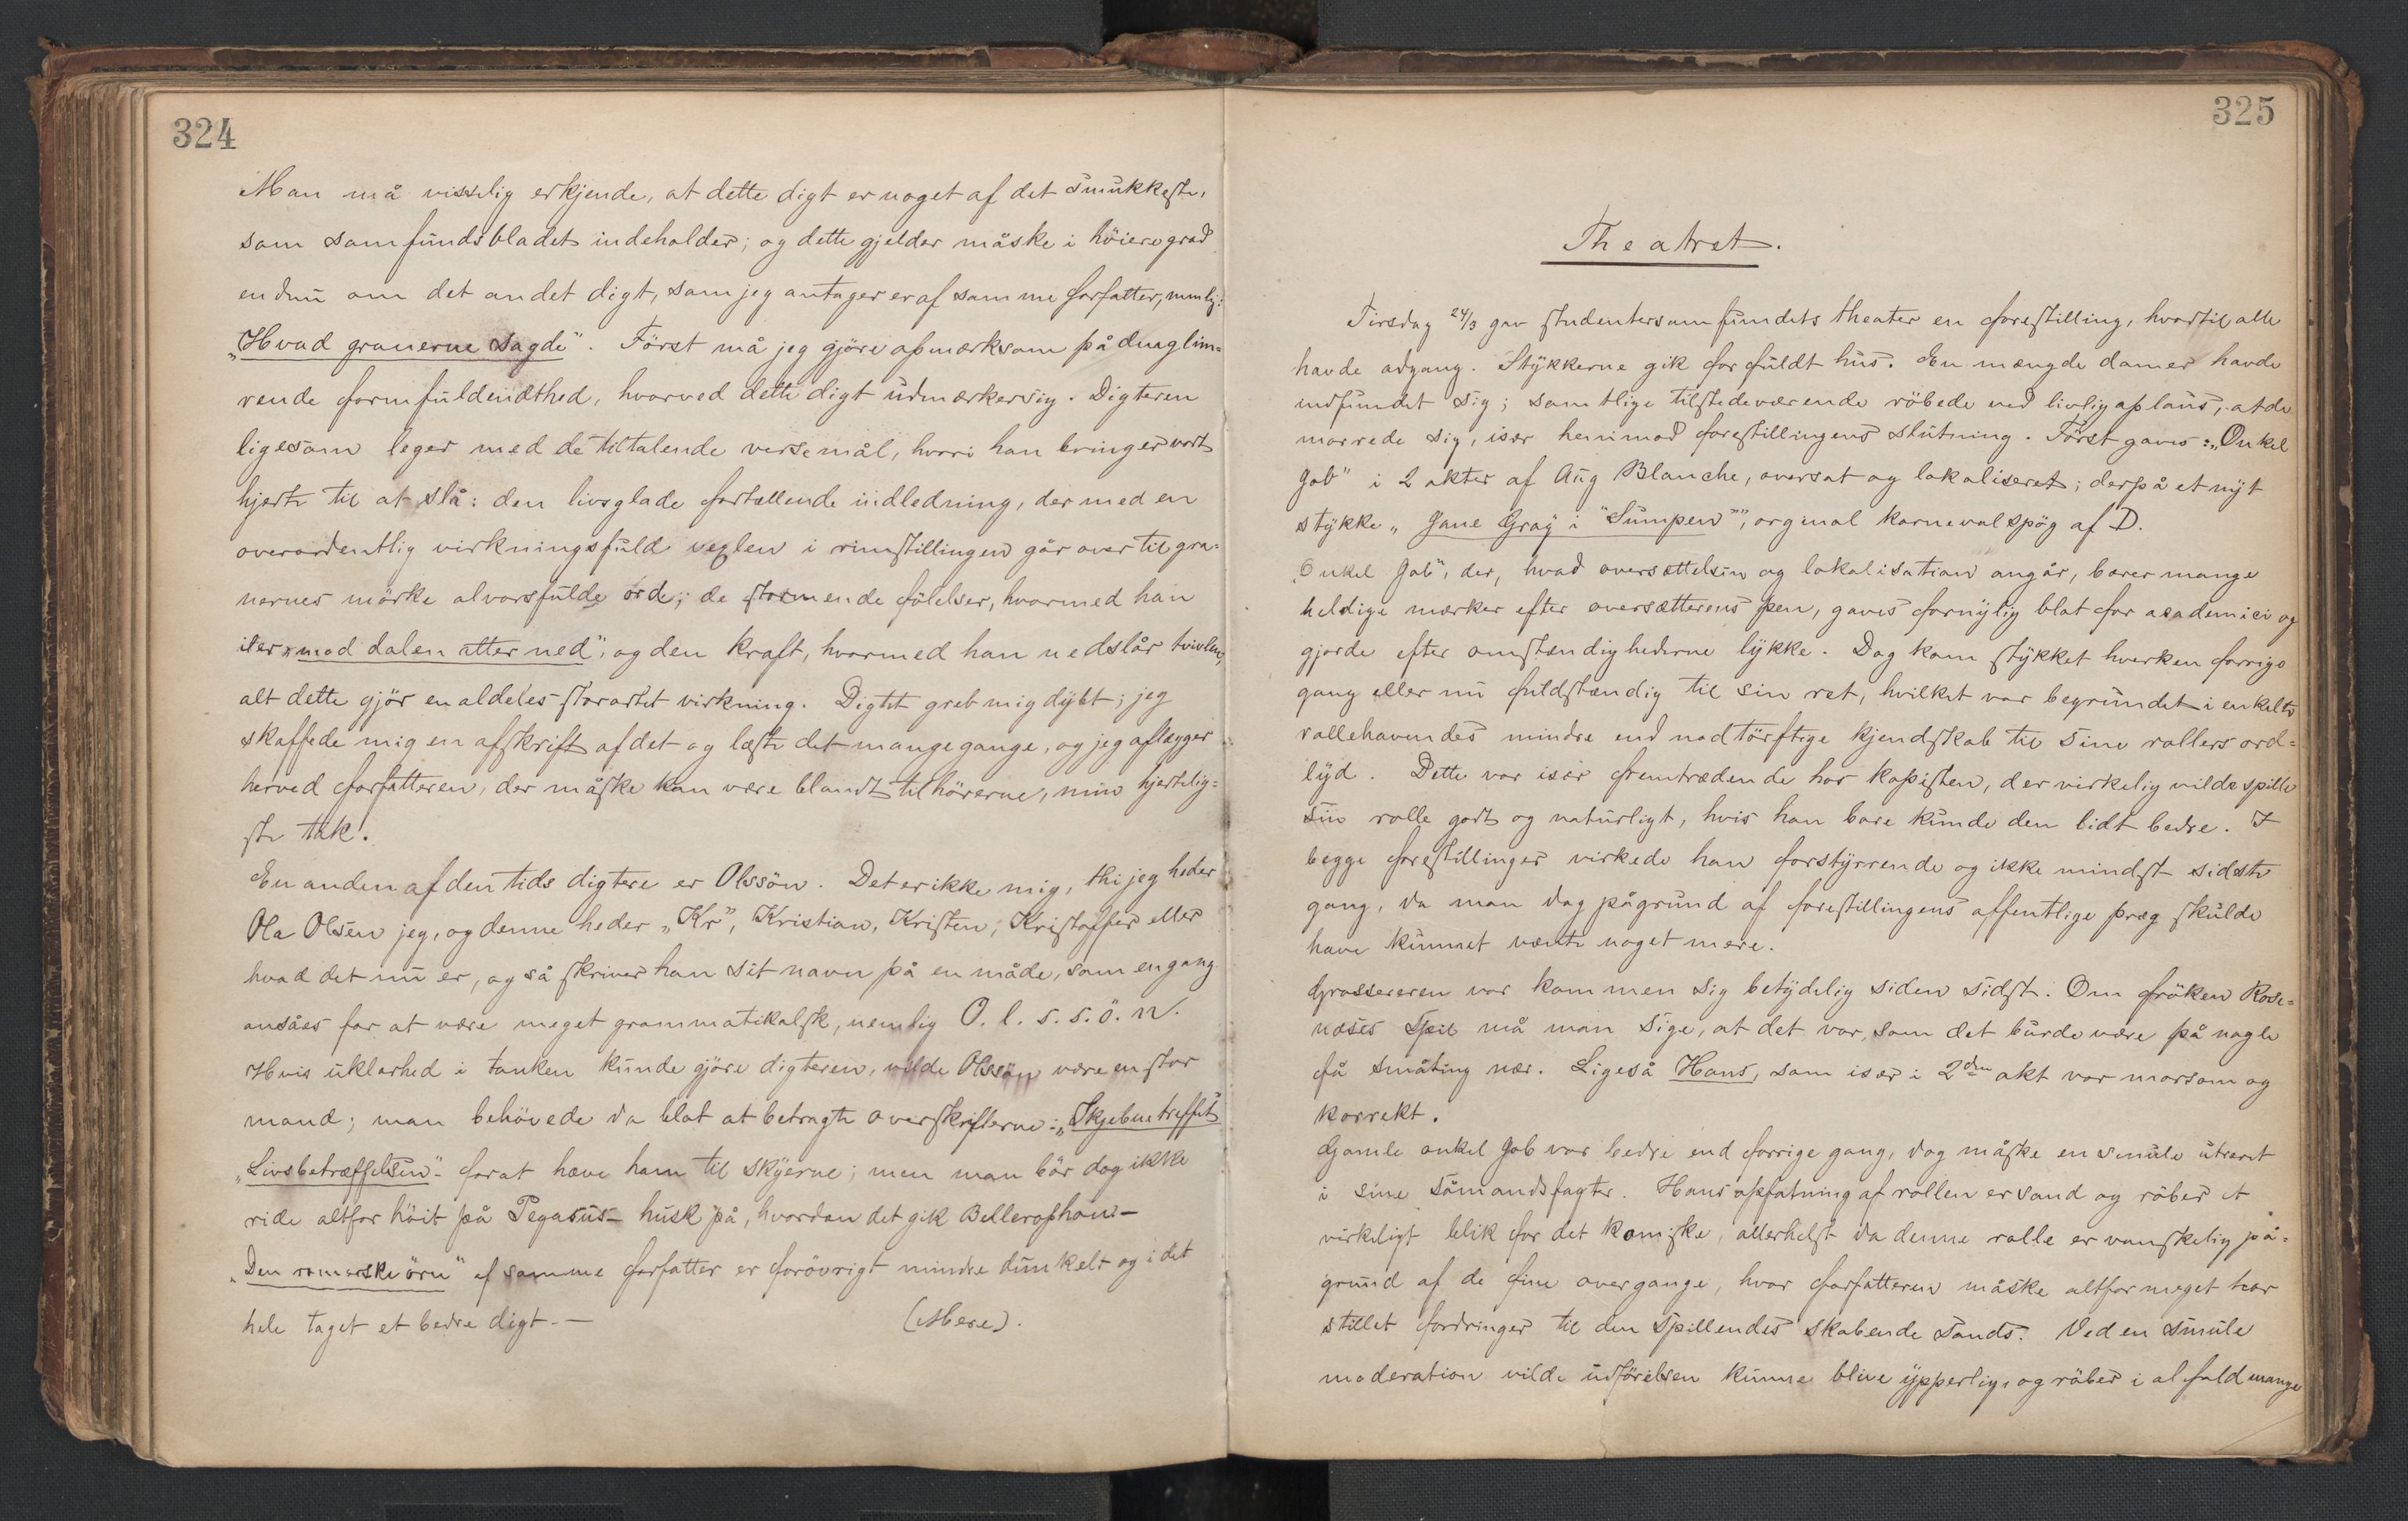 324
Man må visselig erkjende, at dette digt er noget af det smukkeste,
som samfundsbladet indeholder; og dette gjelder måske i höiere grad
endnu om det andet digt, som jeg antager er af samme forfatter, nmlg:
„Hvad granerne sagde". Först må jeg gjöre opmærksom på den glim=
rende formfuldendthed, hvorved dette digt udmærker sig. Digteren
ligesom leger med de tiltalende versemål, hvori han bringer vort
hjerte til at slå: den livsglade fortællende indledning, der med en
overordentlig virkningsfuld vexlen i rimstillingen går over til gra=
nernes mörke alvorsfulde ord; de stormende fölelser, hvormed han
iler „mod dalen atter ned", og den kraft, hvormed han nedslår tvivlen,
alt dette gjör en aldeles storartet virkning. Digtet greb mig dybt; jeg
skaffede mig en afskrift af det og læste det mange gange, og jeg aflægger
herved forfatteren, der måske kan være blandt tilhörerne, min hjertelig=
ste tak!
En anden af den tids digtere er Olssön. Det er ikke mig, thi jeg heder
Ola Olsen jeg, og denne heder „Kr", Kristian, Kristen, Kristoffer eller
hvad det nu er, og så skriver han sit navn på en måde, som engang
ansåes for at være meget grammatikalsk, nemlig O. l. s. s. ö. n.
Hvis uklarhed i tanken kunde gjöre digteren, vilde Olssön være en stor
mand; man behövede da blot at betragte overskrifterne: „Skjebnetreffet"
„Livsbetræffelsen" - for at hæve ham til skyerne; men man bör dog ikke
ride altfor höit på Pegasus - husk på, hvordan det gik Bellerophon -
„Den romerske örn" af samme forfatter er forövrigt mindre dunkelt og i det
hele taget et bedre digt. —
(Mere).
325
Theatret.
Tirsdag 24/3 gav studentersamfundets theater en forestilling, hvortil alle
havde adgang. Stykkerne gik for fuldt hus. En mængde damer havde
indfundet sig; samtlige tilstedeværende röbede ved livlig aplaus, at de
morrede sig, især henimod forestillingens slutning. Först gaves: „Onkel
Job" i 2 akter af Aug Blanche, oversat og lokaliseret; derpå et nyt
stykke „Jane Gray i "Sumpen"", orginal karnevalspög af D.
„Onkel Job", der, hvad oversættelsen og lokalisation angår, bærer mange
heldige mærker efter oversætterens pen, gaves fornylig blot for academici og
gjorde efter omstændighederne lykke. Dog kom stykket hverken forrige
gang eller nu fuldstændig til sin ret, hvilket var begrundet i enkelte
rollehavendes mindre end nødtörftige kjendskab til sine rollers ord=
lyd. Dette var især fremtrædende hos kopisten, der virkelig vilde spille
sin rolle godt og naturligt, hvis han bare kunde den lidt bedre. I
begge forestillinger virkede han forstyrrende og ikke mindst sidste
gang, da man dog pågrund af forestillingens offentlige præg skulde
have kunnet vænte noget mere.
Grossereren var kommen sig betydelig siden sidst. Om fröken Rose=
næses spil må man sige, at det var, som det burde være på nogle
få småting nær. Ligeså Hans, som især i 2den akt var morsom og
korrekt.
Gamle onkel Job var bedre end forrige gang, dog måske en smule utreret
i sine sömandsfagter. Hans opfatning af rollen er sand og röber et
virkeligt blik for det komiske, allerhelst da denne rolle er vanskelig på=
grund af de fine overgange, hvor forfatteren måske altfor meget har
stillet fordringer til den spillendes skabende sands. Ved en smule
moderation vilde udförelsen kunne blive ypperlig, og röber i al fald mange